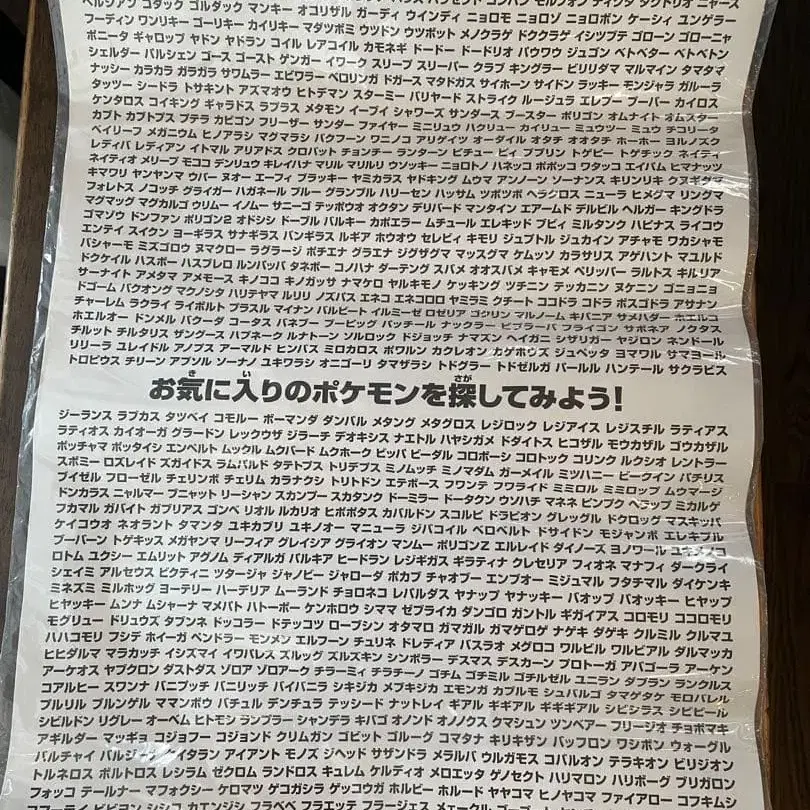 ペルシアン コダック ゴルダック マンキー オコリザル ガーディ ウインディ ニョロモ ニョロゾ ニョロボン ケーシィ ユンゲラー
フーディン ワンリキー ゴーリキー カイリキー マダツボミ ウツドン ウツボット メノクラゲ ドククラゲ イシツブテ ゴローン ゴローニャ
ポニータ ギャロップ ヤドン ヤドラン コイル レアコイル カモネギ ドードー ドードリオ パウワウ ジュゴン ベトベター ベトベトン
シェルダー パルシェン ゴース ゴースト ゲンガー イワーク スリープ スリーパー クラブ キングラー ビリリダマ マルマイン タマタマ
ナッシー カラカラ ガラガラ サワムラー エビワラー ベロリンガ ドガース マタドガス サイホーン サイドン ラッキー モンジャラ ガルーラ
タッツー シードラ トサキント アズマオウ ヒトデマン スターミー バリヤード ストライク ルージュラ エレブー ブーバー カイロス
ケンタロス コイキング ギャラドス ラプラス メタモン イーブイ シャワーズ サンダース ブースター ポリゴン オムナイト オムスター
カブト カブトプス プテラ カビゴン フリーザー サンダー ファイヤー ミニリュウ ハクリュー カイリュー ミュウツー ミュウ チコリータ
ベイリーフ メガニウム ヒノアラシ マグマラシ バクフーン ワニノコ アリゲイツ オーダイル オタチ オオタチ ホーホー ヨルノズク
レディバ レディアン イトマル アリアドス クロバット チョンチー ランターン ピチュー ピィ ププリン トゲピー トゲチック ネイティ
ネイティオ メリープ モココ デンリュウ キレイハナ マリル マリルリ ウソッキー ニョロトノ ハネッコ ポポッコ ワタッコ エイパム ヒマナッツ
キマワリ ヤンヤンマ ウパー ヌオー エーフィ ブラッキー ヤミカラス ヤドキング ムウマ アンノーン ソーナンス キリンリキ クヌギダマ
フォレトス ノコッチ グライガー ハガネール ブルー グランブル ハリーセン ハッサム ツボツボ ヘラクロス ニューラ ヒメグマ リングマ
マグマッグ マグカルゴ ウリムー イノムー サニーゴ テッポウオ オクタン デリバード マンタイン エアームド デルビル ヘルガー キングドラ
ゴマゾウ ドンファン ポリゴン2 オドシシ ドーブル バルキー カポエラー ムチュール エレキッド ブビィ ミルタンク ハピナス ライコウ
エンテイ スイクン ヨーギラス サナギラス バンギラス ルギア ホウオウ セレビィ キモリ ジュプトル ジュカイン アチャモ ワカシャモ
バシャーモ ミズゴロウ ヌマクロー ラグラージ ポチエナ グラエナ ジグザグマ マッスグマ ケムッソ カラサリス アゲハント マユルド
ドクケイル ハスボー ハスブレロ ルンパッパ タネボー コノハナ ダーテング スバメ オオスバメ キャモメ ペリッパー ラルトス キルリア
サーナイト アメタマ アメモース キノココ キノガッサ ナマケロ ヤルキモノ ケッキング ツチニン テッカニン ヌケニン ゴニョニョ
ドゴーム バクオング マクノシタ ハリテヤマ ルリリ ノズパス エネコ エネコロロ ヤミラミ クチート ココドラ コドラ ボスゴドラ アサナン
チャーレム ラクライ ライボルト プラスル マイナン バルビート イルミーゼ ロゼリア ゴクリン マルノーム キバニア サメハダー ホエルコ
ホエルオー ドンメル バクーダ コータス バネブー ブーピッグ パッチール ナックラー ビブラーバ フライゴン サボネア ノクタス
チルット チルタリス ザングース ハブネーク ルナトーン ソルロック ドジョッチ ナマズン ヘイガニ シザリガー ヤジロン ネンドール
リリーラ ユレイドル アノプス アーマルド ヒンバス ミロカロス ポワルン カクレオン カゲボウズ ジュペッタ ヨマワル サマヨール
トロピウス チリーン アブソル ソーナノ ユキワラシ オニゴーリ タマザラシ トドグラー トドゼルガ パールル ハンテール サクラビス
お気に入りのポケモンを探してみよう!
ジーランス ラブカス タツベイ コモルー ボーマンダ ダンバル メタング メタグロス レジロック レジアイス レジスチル ラティアス
ラティオス カイオーガ グラードン レックウザ ジラーチ デオキシス ナエトル ハヤシガメ ドダイトス ヒコザル モウカザル ゴウカザル
ポッチャマ ポッタイシ エンペルト ムックル ムクバード ムクホーク ビッパ ビーダル コロボーシ コロトック コリンク ルクシオ レントラー
スボミー ロズレイド ズガイドス ラムパルド タテトプス トリデプス ミノムッチ ミノマダム ガーメイル ミツハニー ビークイン パチリス
ブイゼル フローゼル チェリンボ チェリム カラナクシ トリトドン エテボース フワンテ フワライド ミミロル ミミロップ ムウマージ
ドンカラス ニャルマー ブニャット リーシャン スカンプー スカタンク ドーミラー ドータクン ウソハチ マネネ ピンプク ペラップ ミカルゲ
フカマル ガバイト ガブリアス ゴンベ リオル ルカリオ ヒポポタス カバルドン スコルピ ドラピオン グレッグル ドクロッグ マスキッパ
ケイコウオ ネオラント タマンタ ユキカブリ ユキノオー マニューラ ジバコイル ベロベルト ドサイドン モジャンボ エレキブル
ブーバーン トゲキッス メガヤンマ リーフィア グレイシア グライオン マンムー ポリゴンZ エルレイド ダイノーズ ヨノワール ユキメノコ
ロトム ユクシー エムリット アグノム ディアルガ パルキア ヒードラン レジギガス ギラティナ クレセリア フィオネ マナフィ ダークライ
シェイミ アルセウス ビクティニ ツタージャ ジャノビー ジャローダ ポカブ チャオブー エンブオー ミジュマル フタチマル ダイケンキ
ミネズミ ミルホッグ ヨーテリー ハーデリア ムーランド チョロネコ レパルダス ヤナップ ヤナッキー バオップ バオッキー ヒヤップ
ヒヤッキー ムンナ ムシャーナ マメパト ハトーボー ケンホロウ シママ ゼブライカ ダンゴロ ガントル ギガイアス コロモリ ココロモリ
モグリュー ドリュウズ タブンネ ドッコラー ドテッコツ ローブシン オタマロ ガマガル ガマゲロゲ ナゲキ ダゲキ クルミル クルマユ
ハハコモリ フシデ ホイーガ ペンドラー モンメン エルフーン チュリネ ドレディア バスラオ メグロコ ワルビル ワルビアル ダルマッカ
ヒヒダルマ マラカッチ イシズマイ イワパレス ズルッグ ズルズキン シンボラー デスマス デスカーン プロトーガ アバゴーラ アーケン
アーケオス ヤブクロン ダストダス ゾロア ゾロアーク チラーミィ チラチーノ ゴチム ゴチミル ゴチルゼル ユニラン ダブラン ランクルス
コアルヒー スワンナ バニプッチ バニリッチ バイバニラ シキジカ メブキジカ エモンガ カブルモ シュバルゴ タマゲタケ モロバレル
プルリル ブルンゲル ママンボウ バチュル デンチュラ テッシード ナットレイ ギアル ギギアル ギギギアル シビシラス シビビール
シビルドン リグレー オーベム ヒトモシ ランプラー シャンデラ キバゴ オノンド オノノクス クマシュン ツンベアー フリージオ チョボマキ
アギルダー マッギョ コジョフー コジョンド クリムガン ゴビット ゴルーグ コマタナ キリキザン バッフロン ワシボン ウォーグル
バルチャイ バルジーナ クイタラン アイアント モノズ ジヘッド サザンドラ メラルバ ウルガモス コバルオン テラキオン ビリジオン
トルネロス ボルトロス レシラム ゼクロム ランドロス キュレム ケルディオ メロエッタ ゲノセクト ハリマロン ハリボーグ ブリガロン
フォッコ テールナー マフォクシー ケロマツ ゲコガシラ ゲッコウガ ホルビー ホルード ヤヤコマ ヒノヤコマ ファイアロー コフキムシ